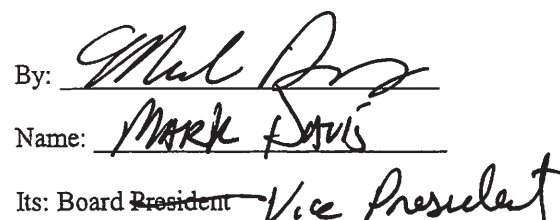 By: Mark Davis
Name: MARK DAVIS
Its: Board President Vice President